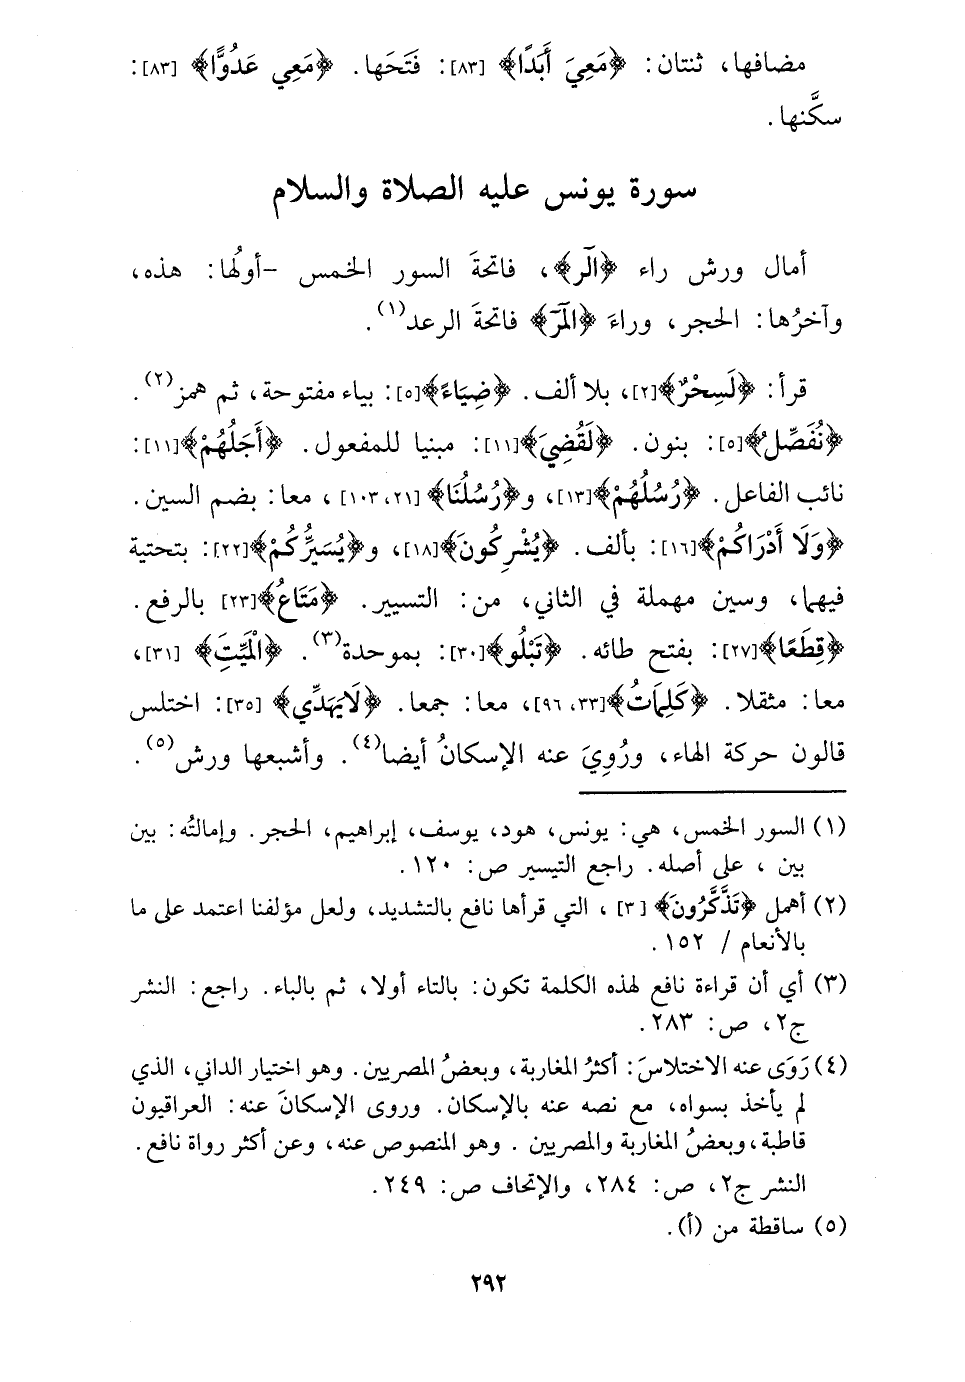 مضافها، ثنتان: ﴿مَعِيَ أَبَدًا﴾ [٨٣]: فَتَحَها. ﴿مَعِي عَدُوًّا﴾ [٨٣]:
سكَّنها.
سورة يونس عليه الصلاة والسلام
أمال ورش راء ﴿الٓر﴾، فاتحةَ السور الخمس -أولُها: هذه،
وآخرُها: الحجر، وراءَ ﴿الٓمٓر﴾ فاتحةَ الرعد(١).
قرأ: ﴿لَسِحْرٌ﴾[٢]، بلا ألف. ﴿ضِيَاءً﴾[٥]: بياء مفتوحة، ثم همز(٢).
﴿نُفَصِّلُ﴾[٥]: بنون. ﴿لَقُضِيَ﴾[١١]: مبنيا للمفعول. ﴿أَجَلُهُمْ﴾[١١]:
نائب الفاعل. ﴿رُسُلُهُمْ﴾[١٣]، و﴿رُسُلُنَا﴾ [٢١، ١٠٣] ، معا: بضم السين.
﴿وَلَا أَدْرَاكُمْ﴾[١٦]: بألف. ﴿يُشْرِكُونَ﴾[١٨]، و﴿يُسَيِّرُكُمْ﴾[٢٢]: بتحتية
فيهما، وسين مهملة في الثاني، من: التسيير. ﴿مَتَاعُ﴾[٢٣] بالرفع.
﴿قِطَعًا﴾[٢٧]: بفتح طائه. ﴿تَبْلُو﴾[٣٠]: بموحدة(٣). ﴿الْمَيِّتِ﴾ [٣١]،
معا: مثقلا. ﴿كَلِمَاتُ﴾[٣٣، ٩٦]، معا: جمعا. ﴿لَايَهَدِّي﴾ [٣٥]: اختلس
قالون حركة الهاء، ورُوِيَ عنه الإسكانُ أيضا(٤). وأشبعها ورش(٥).
(١) السور الخمس، هي: يونس، هود، يوسف، إبراهيم، الحجر. وإمالتُه: بين
بين ، على أصله. راجع التيسير ص: ١٢٠.
(٢) أهمل ﴿تَذَّكَّرُونَ﴾ [٣] ، التي قرأها نافع بالتشديد، ولعل مؤلفنا اعتمد على ما
بالأنعام / ١٥٢.
(٣) أي أن قراءة نافع لهذه الكلمة تكون: بالتاء أولا، ثم بالباء. راجع: النشر
ج٢، ص: ٢٨٣.
(٤) رَوَى عنه الاختلاسَ: أكثرُ المغاربة، وبعضُ المصريين. وهو اختيار الداني، الذي
لم يأخذ بسواه، مع نصه عنه بالإسكان. وروى الإسكانَ عنه: العراقيون
قاطبة، وبعضُ المغاربة والمصريين . وهو المنصوص عنه، وعن أكثر رواة نافع.
النشر ج٢، ص: ٢٨٤، والإتحاف ص: ٢٤٩.
(٥) ساقطة من (أ).
٢٩٢